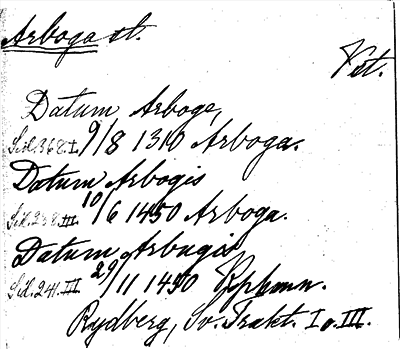 Arboga st.
Vst.
Datum Arboge,
Sid. 368. I. 9/8 1310 Arboga.
Datum Arbogis
Sid. 238. III. 10/6 1450 Arboga.
Datum Arbugis
Sid. 241. III. 29/11 1450
Rydberg, Sv. Trakt. I o. III.